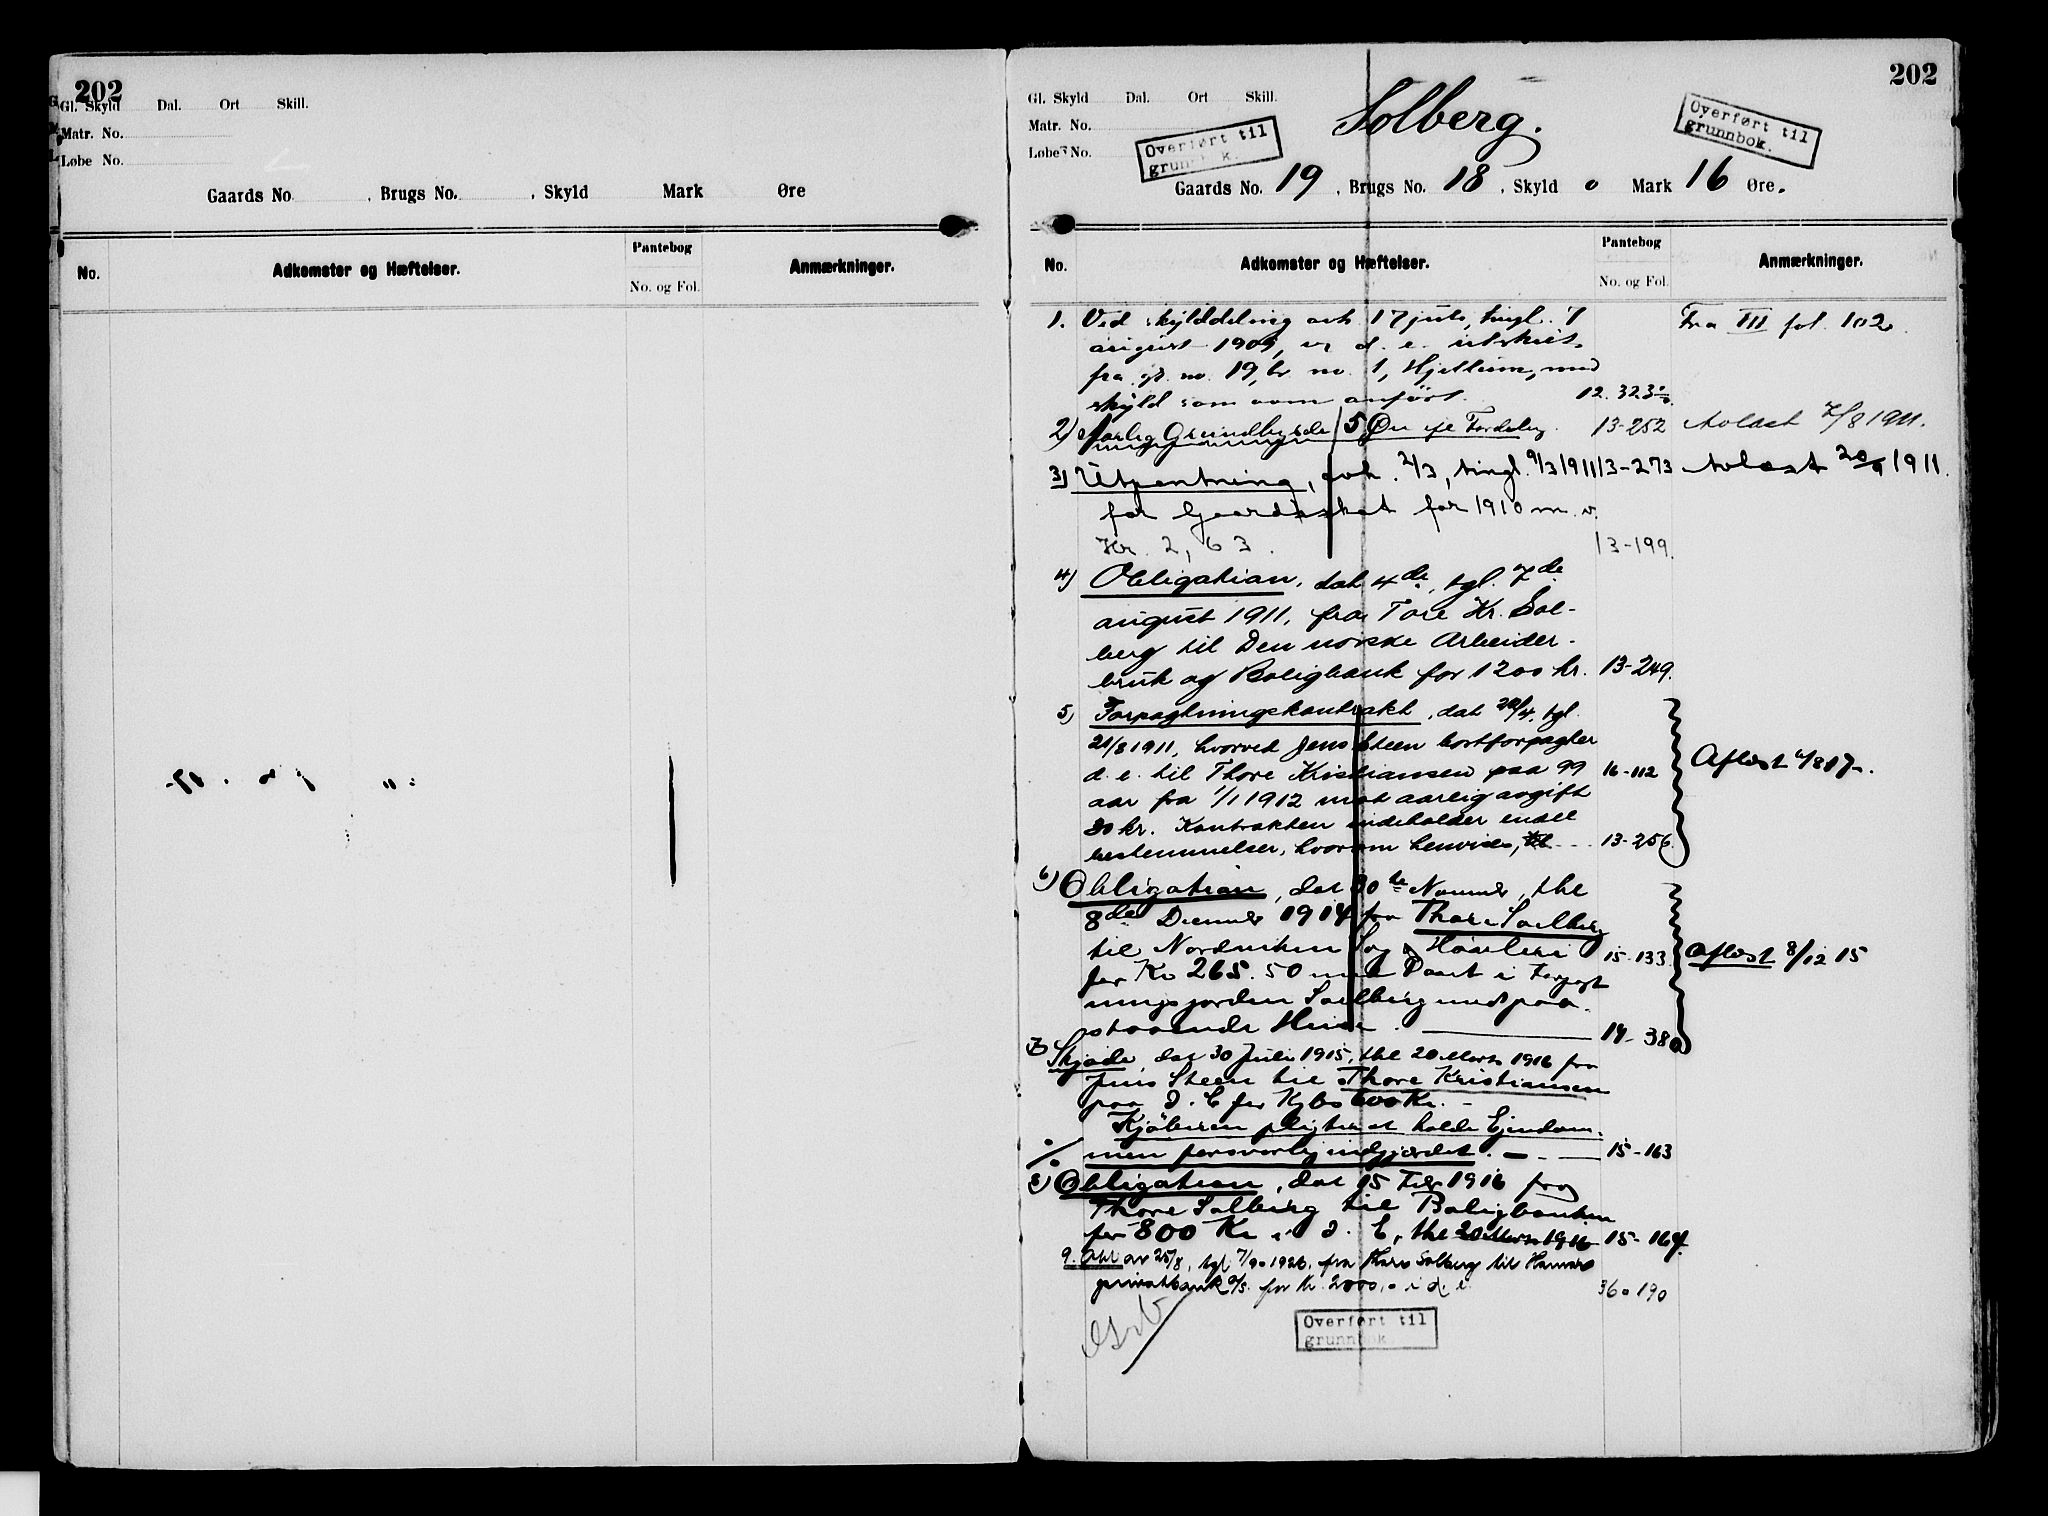 202
Gl. Skyld Dal. Ort Skill.
Matr. No.
Løbe No.
Gaards No. , Brugs No. , Skyld Mark Øre
No. Adkomster og Hæftelser. Pantebog No. og Fol. Anmærkninger.
202
Gl. Skyld Dal. Ort Skill.
Matr. No.
Løbe No.
Overført til
grunnbok.
Solberg.
Overført til
grunnbok.
Gaards No. 19, Brugs No. 18, Skyld 0 Mark 16 Øre.
No. Adkomster og Hæftelser. Pantebog No. og Fol. Anmærkninger.
1. Ved skylddeling avh. 17 juli, tingl. 7 Fra III fol. 102.
august 1909, er d. e. utskilt
fra gr. no. 19, br. no. 1, Hjellum, med
skyld som ovm anført. 12. 323
2) Aarlig Grundbyrde 5 Øre Fordeling. 13-252 Avlæst 7/8 1911.
3) Utpantning, avh. 2/3, tingl. 9/3 1911 13-273 Avlæst 20/9 1911.
for Gaardsskat for 1910 m. v.
Kr. 2,63. 13-199.
4) Obligation, dat 4de, tgl. 7de
august 1911, fra Tore Kr. Sol-
berg til Den norske Arbeider-
bruk og Boligbank for 1200 kr. 13-249.
5) Forpagtningskontrakt, dat 20/4, tgl.
21/8 1911, hvorved Jens Steen bortforpagter
d. e. til Thore Kristiansen paa 99 16-112 Aflæst 4/8 17.
aar fra 1/1 1912 mot aarlig avgift
30 kr. Kontrakten indeholder endel
bestemmelser, hvorom henvises, 13-256.
6) Obligation, dat 30te Novembr, thl
8de Decembr 1914 fra Thore Soelberg
til Nordviken Sag & Høvleri 15-133 Aflæst 8/12 15
for Kr 265.50 med Pant i Forpagt
ningsjorden Soelberg med paa-
staaende Huse. 14-380
7) Skjøde, dat 30 Juli 1915, thl 20 Marts 1916 fra
Jens Steen til Thore Kristiansen
paa d. E for Kjbs 600 Kr. -
Kjøberen pligter at holde Eiendom-
men forsvarlig indgjærdet. 15-163
8) Obligation, dat 15 Febr 1916 fra
Thore Solberg til Boligbanken
for 800 Kr i d. E, thl 20 Marts 1916 15-164.
9. Obl av 25/8, tgl 7/9 1920, fra Thore Solberg til Hamar
privatbank A/S. for kr. 2000,- i d. e. 36 190
Overført til
grunnbok.